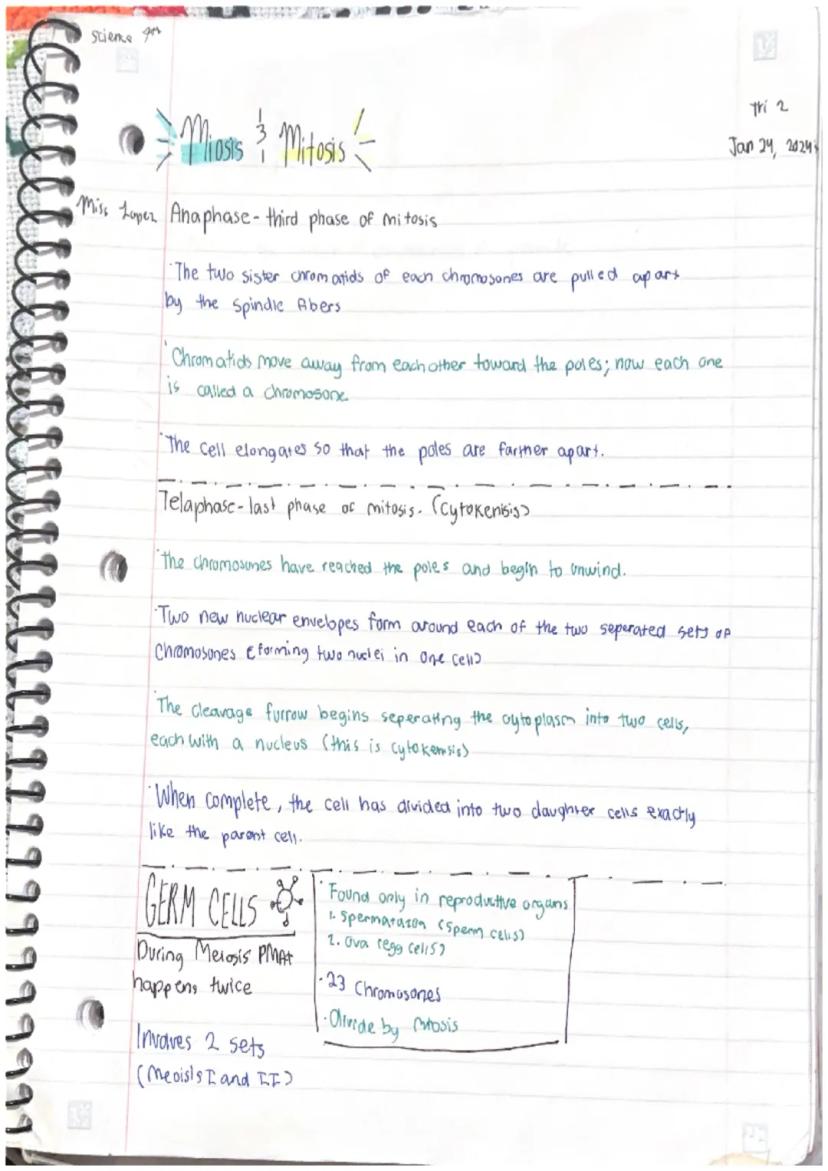 Science 9th
Tri 2
Jan 24, 2024
Miosis & Mitosis
Miss Lopez
Anaphase - third phase of mitosis
·The two sister chromatids of each chromosones are pulled apart
by the spindle fibers
·Chromatids move away from each other toward the poles; now each one
is called a chromosone
·The cell elongates so that the poles are farther apart.
Telaphase - last phase of mitosis. (Cytokenisis)
·The chromosones have reached the poles and begin to unwind.
·Two new nuclear envelopes form around each of the two seperated sets of
chromosones (forming two nuclei in one cell)
·The cleavage furrow begins seperating the cytoplasm into two cells,
each with a nucleus (this is cytokensis)
·When complete, the cell has divided into two daughter cells exactly
like the parent cell.
GERM CELLS
During Meiosis PMAT
happens twice
Involves 2 sets
(Meoisis I and II)
·Found only in reproductive organs
1. Spermatazoa (sperm cells)
2. Ova (egg cells)
·23 Chromosones
·Divide by